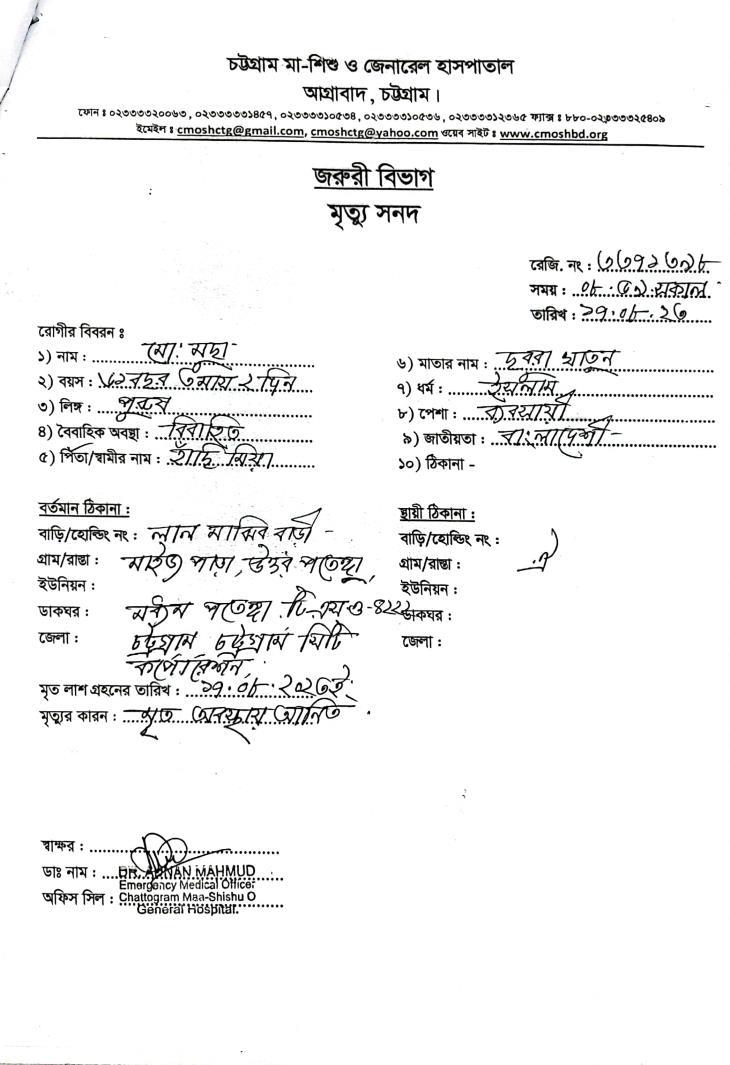 চট্টগ্রাম মা-শিশু ও জেনারেল হাসপাতাল
আগ্রাবাদ, চট্টগ্রাম।
ফোন ঃ ০২৩৩৩৩২০০৬৩, ০২৩৩৩৩১৪৫৭, ০২৩৩৩৩১০৫৩৪, ০২৩৩৩৩১০৫৩৬, ০২৩৩৩৩১২৩৬৫ ফ্যাক্স ঃ ৮৮০-০২৩৩৩৩২৫৪০৯
ইমেইল ঃ cmoshctg@gmail.com, cmoshctg@yahoo.com ওয়েব সাইট ঃ www.cmoshbd.org
জরুরী বিভাগ
মৃত্যু সনদ
রেজি. নং :
সময় : ০৮.৫৯ সকাল
তারিখ : ১৭.০৮.২৩
রোগীর বিবরন ঃ
১) নাম : মো:
২) বয়স : বছর মাস ২ দিন
৩) লিঙ্গ : পুরুষ
৪) বৈবাহিক অবস্থা : বিবাহিত
৫) পিতা/স্বামীর নাম : মিয়া
৬) মাতার নাম : খাতুন
৭) ধর্ম : ইসলাম
৮) পেশা : ব্যবসায়ী
৯) জাতীয়তা : বাংলাদেশী
১০) ঠিকানা -
বর্তমান ঠিকানা :
বাড়ি/হোল্ডিং নং : লাল মাঝির বাড়ী -
গ্রাম/রাস্তা : মাইজ পাড়া, উত্তর পতেঙ্গা,
ইউনিয়ন :
ডাকঘর : পতেঙ্গা
জেলা : চট্টগ্রাম চট্টগ্রাম সিটি
কর্পোরেশন,
স্থায়ী ঠিকানা :
বাড়ি/হোল্ডিং নং :
গ্রাম/রাস্তা : ঐ
ইউনিয়ন :
ডাকঘর :
জেলা :
মৃত লাশ গ্রহনের তারিখ : ১৭.০৮.২০২৩ইং
মৃত্যুর কারন : মৃত অবস্থায় আনিত।
স্বাক্ষর :
ডাঃ নাম : DR. ADNAN MAHMUD
Emergency Medical Officer
অফিস সিল : Chattogram Maa-Shishu O
General Hospital.